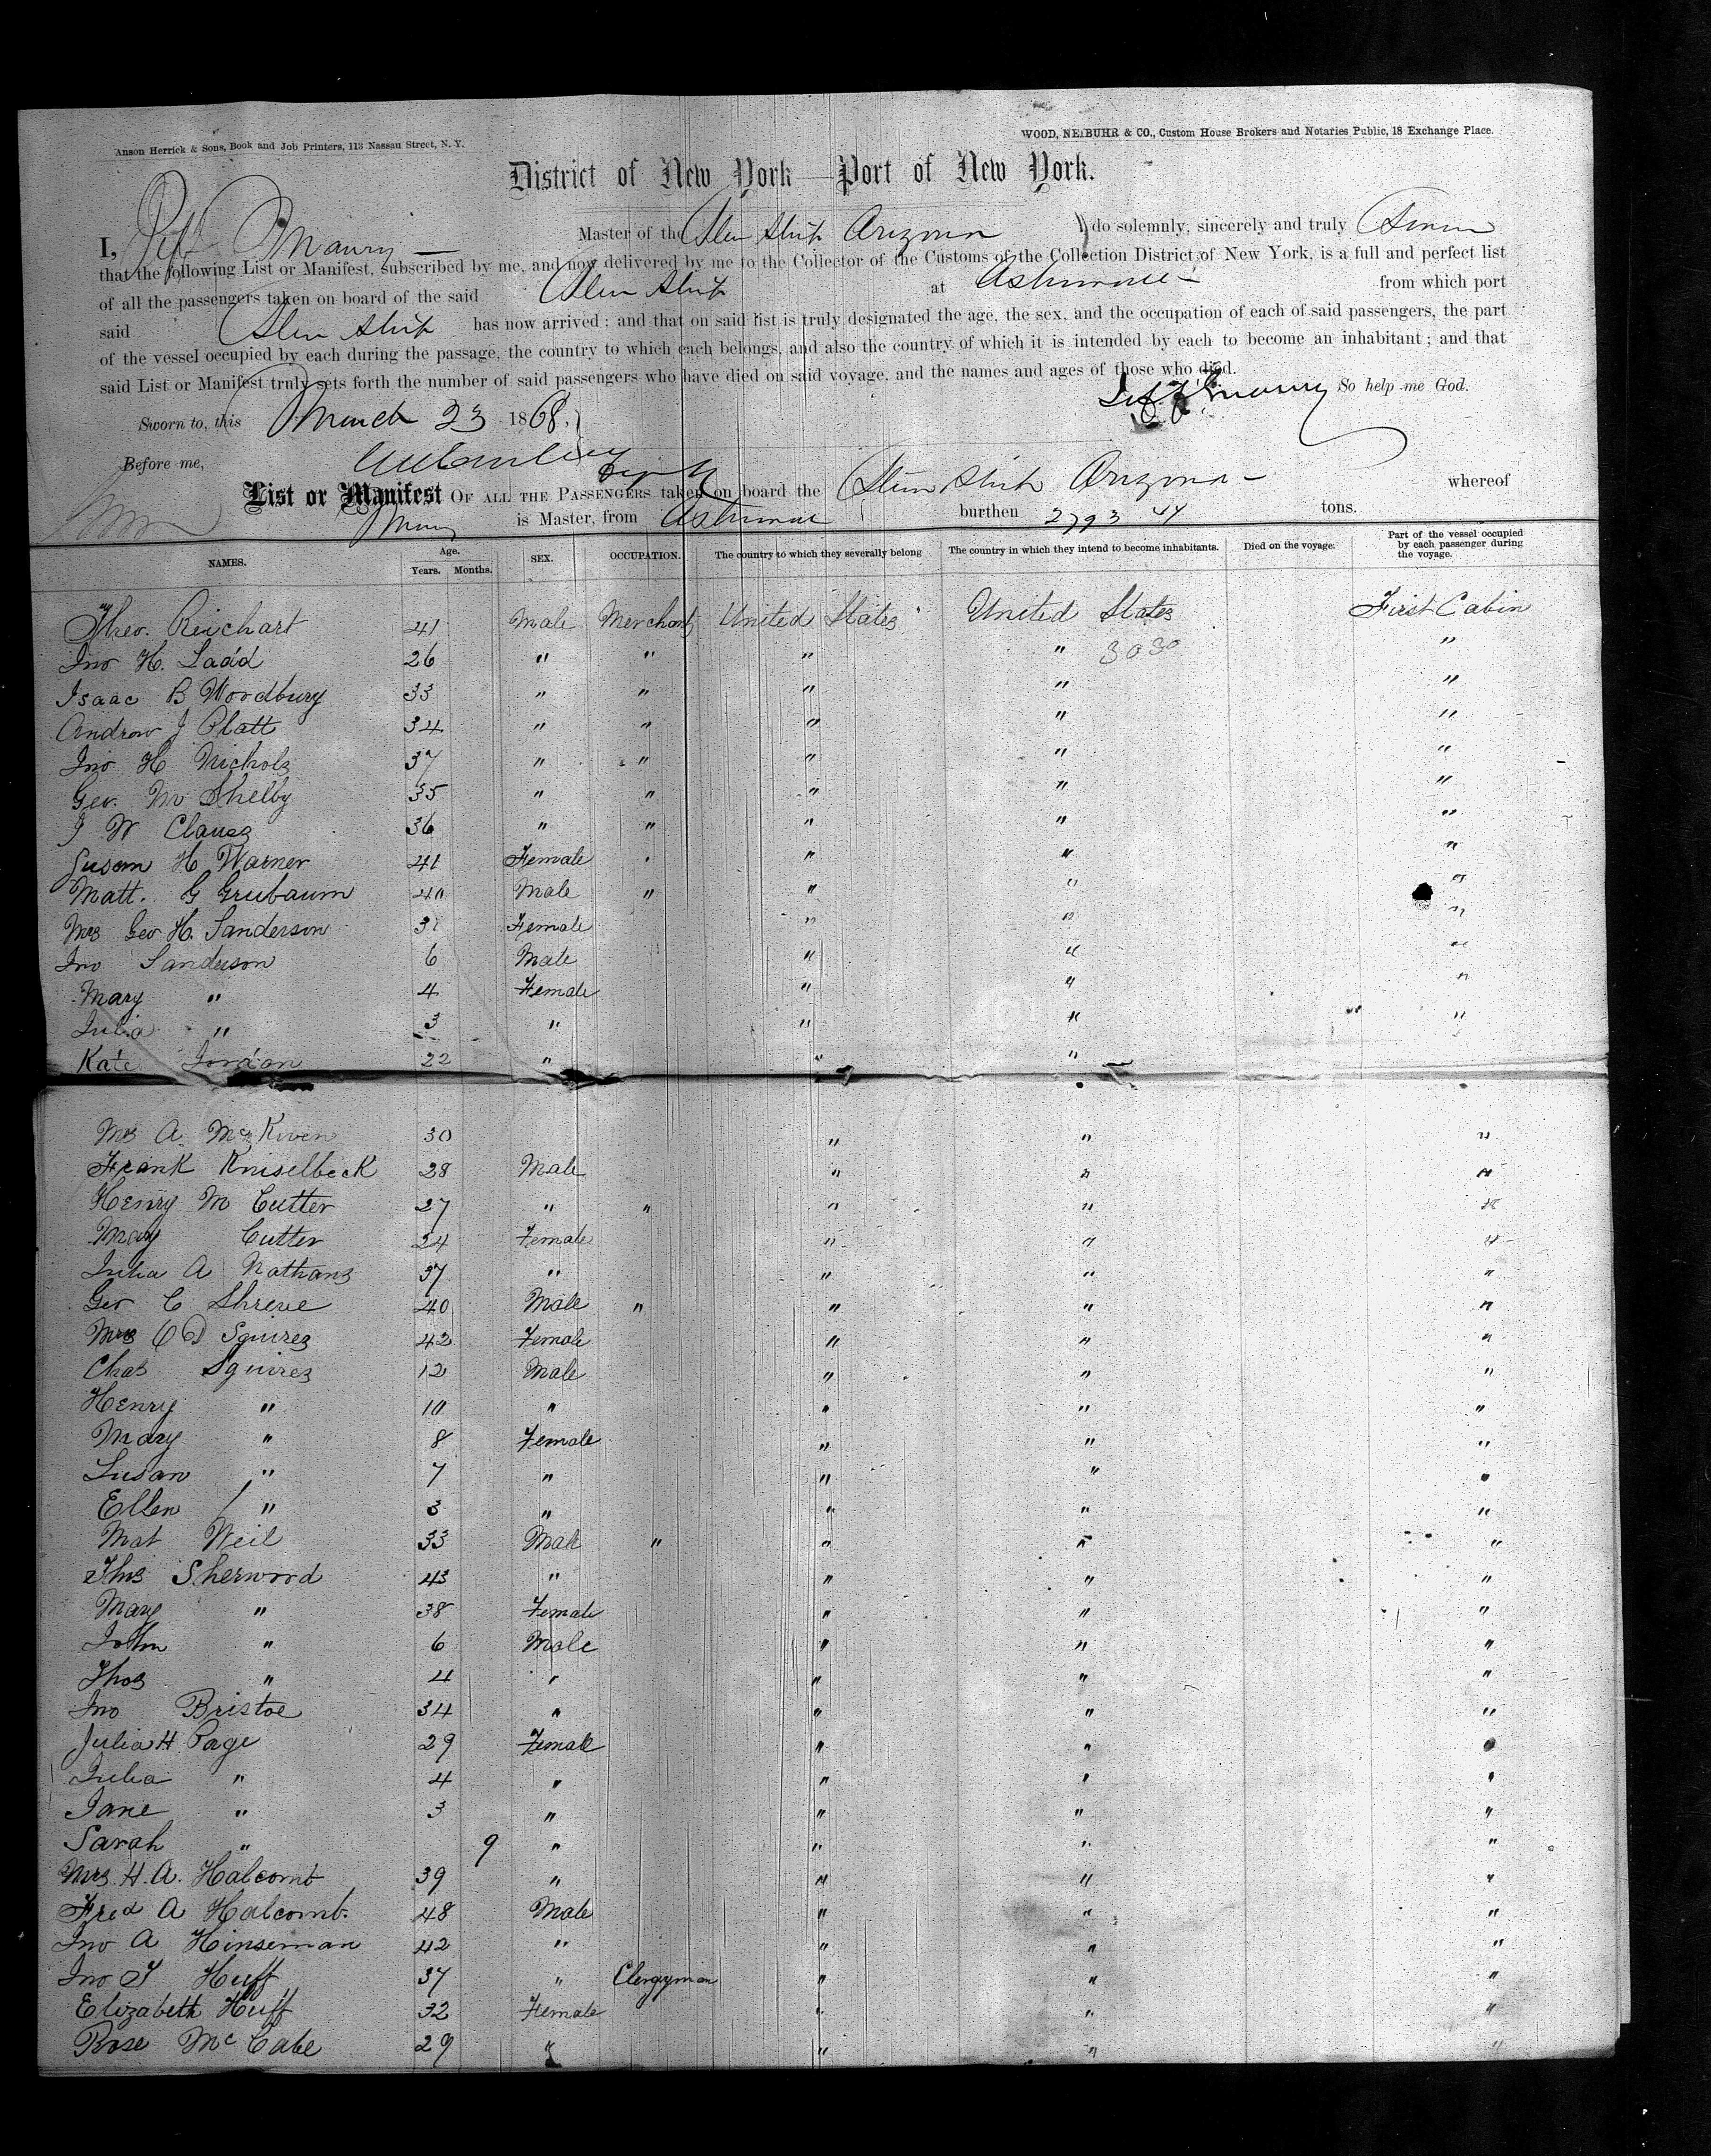 Anson Herrick & Sons, Book and Job Printers, 113 Nassau Street, N. Y.
WOOD, NEIBUHR & CO., Custom House Brokers and Notaries Public, 18 Exchange Place.
District of New York—Port of New York.
I, Jeff Maury Master of the Stm Ship Arizona do solemnly, sincerely and truly Swear
that the following List or Manifest, subscribed by me, and now delivered by me to the Collector of the Customs of the Collection District of New York, is a full and perfect list
of all the passengers taken on board of the said Stm Ship at Aspinwall from which port
said Stm Ship has now arrived; and that on said list is truly designated the age, the sex, and the occupation of each of said passengers, the part
of the vessel occupied by each during the passage, the country to which each belongs, and also the country of which it is intended by each to become an inhabitant; and that
said List or Manifest truly sets forth the number of said passengers who have died on said voyage, and the names and ages of those who died.
So help me God.
Jeff Maury
Sworn to, this March 23 1868.
Before me,
List or Manifest OF ALL THE PASSENGERS taken on board the Stm Ship Arizona whereof
Maury is Master, from Aspinwall burthen 2793 44 tons.
NAMES. Age. Years. Months. SEX. OCCUPATION. The country to which they severally belong The country in which they intend to become inhabitants. Died on the voyage. Part of the vessel occupied by each passenger during the voyage.
Theo. Reichart 41 Male Merchant United States United States First Cabin
Jno H. Ladd 26 " " " " 3030 "
Isaac B Woodbury 33 " " " " "
Andrew J Platt 34 " " " " "
Jno H Nichols 37 " " " " "
Geo. M Shelby 35 " " " " "
J W Clauss 36 " " " " "
Susan H Warner 41 Female " " " "
Matt. G Grubaum 40 Male " " " "
Mrs Geo H. Sanderson 31 Female " " "
Jno Sanderson 6 Male " " "
Mary " 4 Female " " "
Julia " 3 " " " "
Kate Jordan 22 " " "
Mrs A. McKiven 30 " " "
Frank Kniselbeck 28 Male " " "
Henry M Cutter 27 " " " " "
Mary Cutter 24 Female " " "
Julia A Nathans 37 " " " "
Geo C Shreve 40 Male " " " "
Mrs C D Squires 42 Female " " "
Chas Squires 12 Male " " "
Henry " 10 " " " "
Mary " 8 Female " " "
Susan " 7 " " " "
Ellen " 3 " " " "
Mat Weil 33 Male " " " "
Thos Sherwood 43 " " " "
Mary " 38 Female " " "
John " 6 Male " " "
Thos " 4 " " " "
Jno Bristoe 34 " " " "
Julia H. Page 29 Female " " "
Julia " 4 " " " "
Jane " 3 " " " "
Sarah " 9 " " " "
Mrs H. A. Halcomb 39 " " " "
Fred A Halcomb. 48 Male " " "
Jno A Hinseman 42 " " " "
Jno T Huff 37 " Clergyman " " "
Elizabeth Huff 32 Female " " "
Rose McCabe 29 " " " "